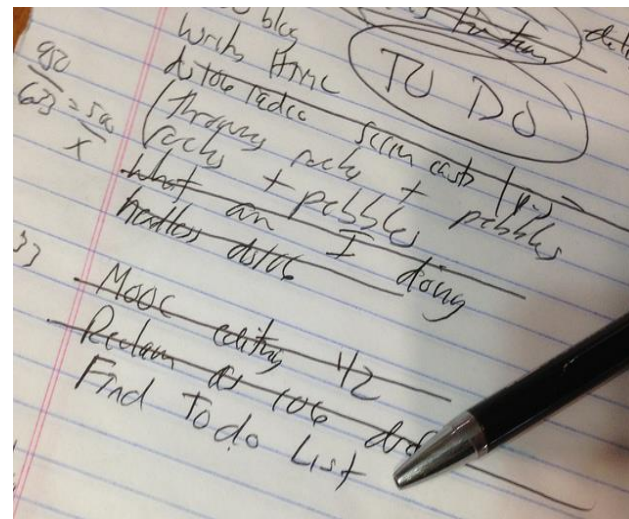 blog
TO DO
Write HTML
ds106 radio screen casts
(Throwing rocks + pebbles
rocks + pebbles
What am I doing
headless ds106
Mooc editing 1/2
Reclaim ds106
Find To do List
950
633 = 500
x
33